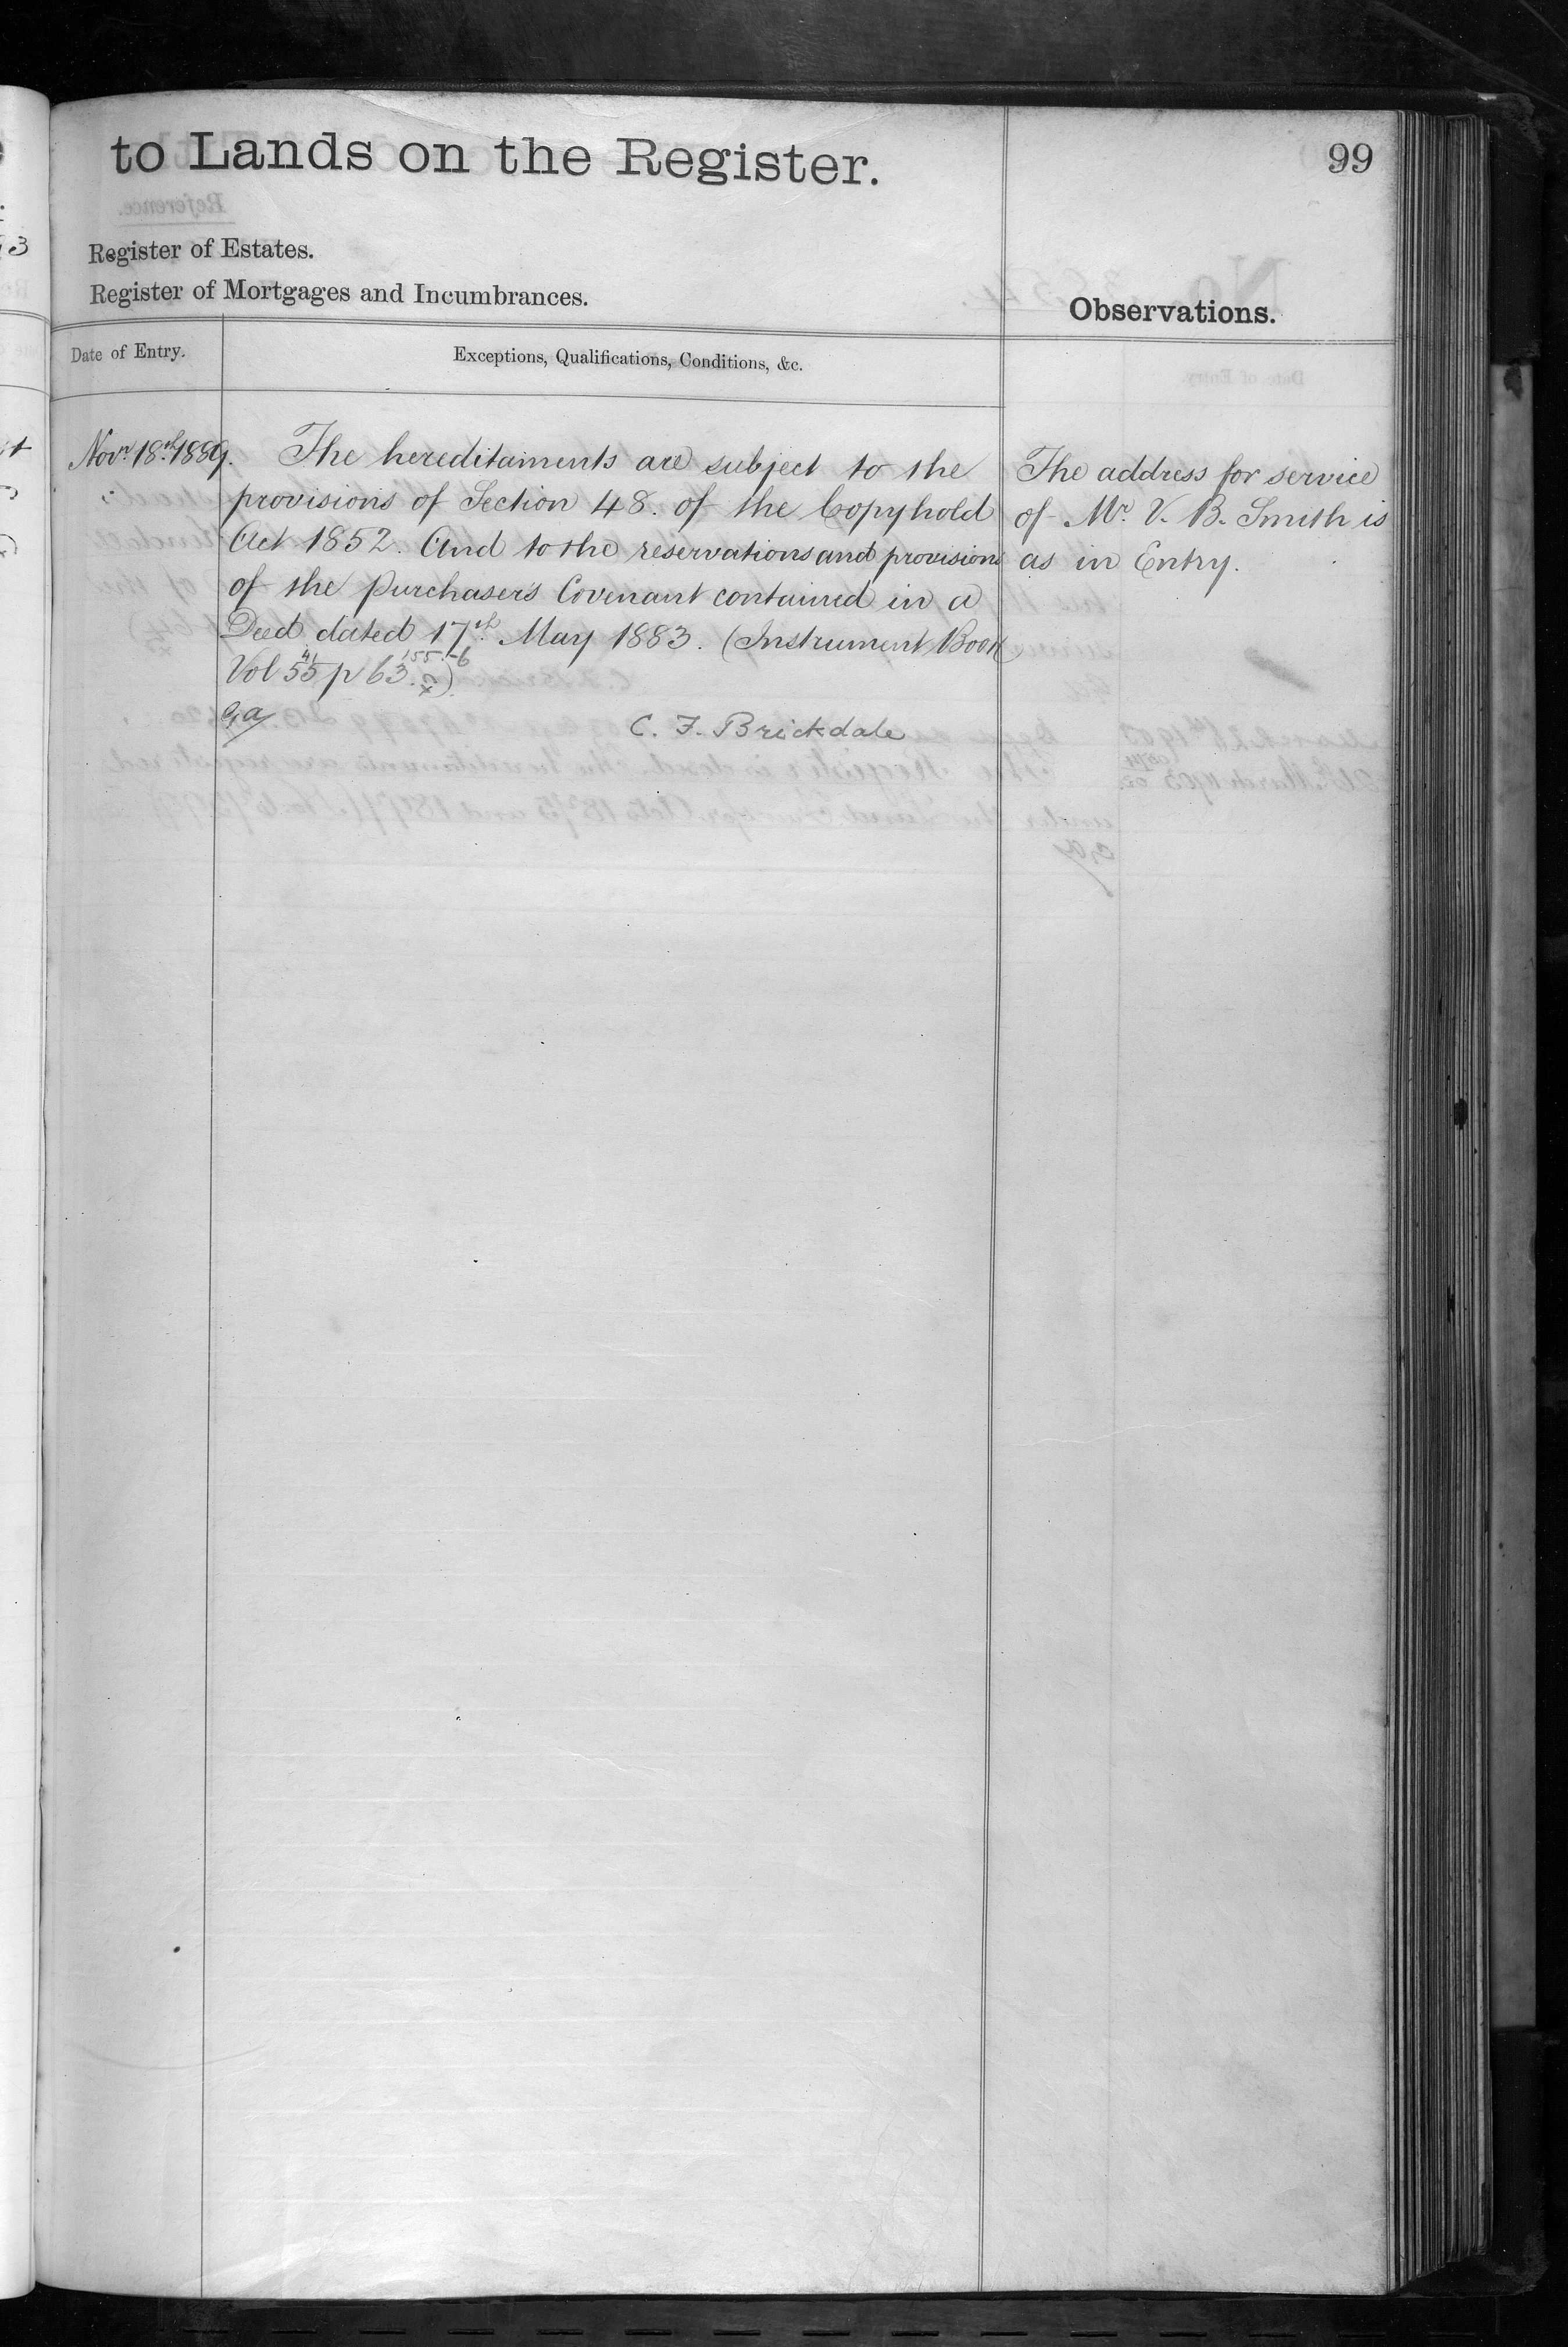 to Lands on the Register.
99
Register of Estates.
Register of Mortgages and Incumbrances.
Observations.
Date of Entry.
Exceptions, Qualifications, Conditions, &c.
Novr. 18th 1889. The hereditaments are subject to the
provisions of Section 48. of the Copyhold
Act 1852. And to the reservations and provisions
of the Purchaser's Covenant contained in a
Deed dated 17th May 1883. (Instrument Book
41 155-6
Vol 55 p 63
C. F. Brickdale
The address for service
of Mr. V. B. Smith is
as in Entry.